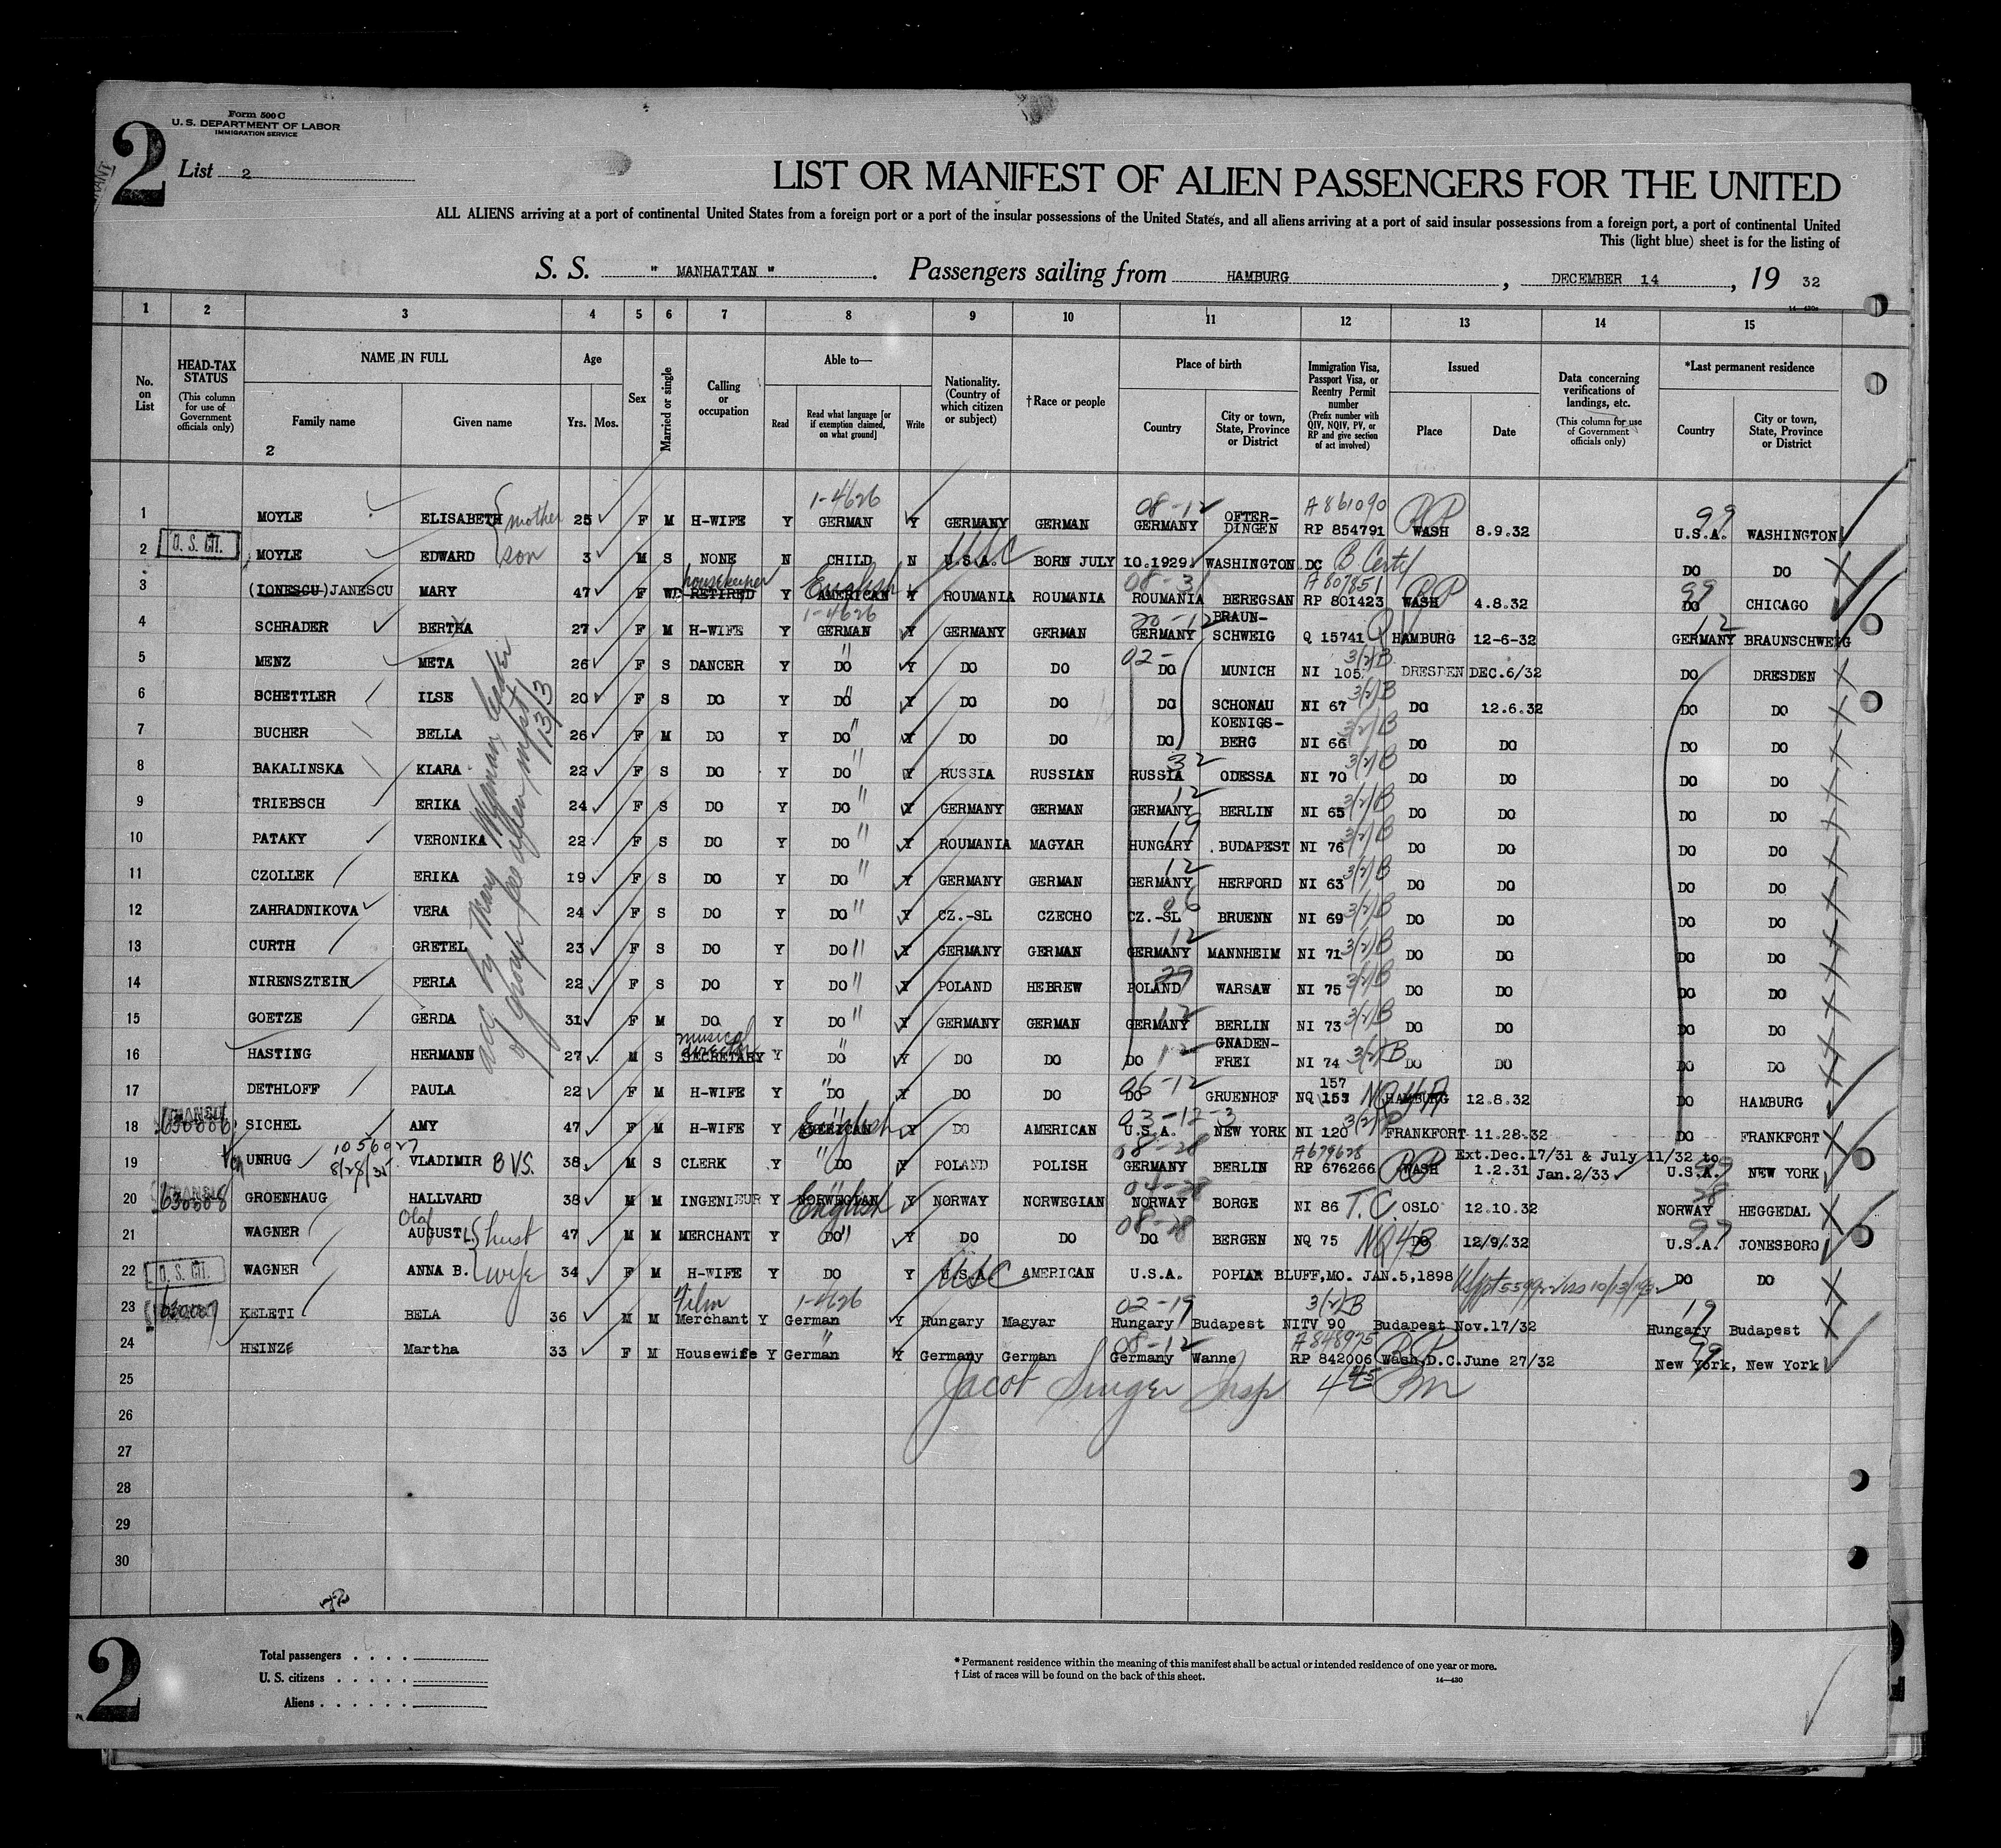 Form 500 C
U. S. DEPARTMENT OF LABOR
IMMIGRATION SERVICE
2
List 2
LIST OR MANIFEST OF ALIEN PASSENGERS FOR THE UNITED
ALL ALIENS arriving at a port of continental United States from a foreign port or a port of the insular possessions of the United States, and all aliens arriving at a port of said insular possessions from a foreign port, a port of continental United
This (light blue) sheet is for the listing of
S. S. " MANHATTAN " . Passengers sailing from HAMBURG , DECEMBER 14 , 19 32
1 2 3 4 5 6 7 8 9 10 11 12 13 14 15
No. on List
HEAD-TAX STATUS (This column for use of Government officials only)
NAME IN FULL
Family name
Given name
2
Age
Yrs. Mos.
Sex
Married or single
Calling or occupation
Able to—
Read
Read what language [or if exemption claimed, on what ground]
Write
Nationality. (Country of which citizen or subject)
†Race or people
Place of birth
Country
City or town, State, Province or District
Immigration Visa, Passport Visa, or Reentry Permit number (Prefix number with QIV, NQIV, PV, or RP and give section of act involved)
Issued
Place
Date
Data concerning verifications of landings, etc. (This column for use of Government officials only)
*Last permanent residence
Country
City or town, State, Province or District
1-4626 08-12 A861090 99
1 MOYLE ELISABETH mother 25 F M H-WIFE Y GERMAN Y GERMANY GERMAN GERMANY OFTER-DINGEN RP 854791 WASH 8.9.32 U.S.A. WASHINGTON
2 U.S. CIT. MOYLE EDWARD son 3 M S NONE N CHILD N U.S.A. USC BORN JULY 10.1929 WASHINGTON DC B Certf DO DO
housekeeper English 08-31 A807851 99
3 (IONESCU)JANESCU MARY 47 F WD RETIRED Y AMERICAN Y ROUMANIA ROUMANIA ROUMANIA BEREGSAN RP 801423 WASH 4.8.32 DO CHICAGO
1-4626 20-12 12
4 SCHRADER BERTHA 27 F M H-WIFE Y GERMAN Y GERMANY GERMAN GERMANY BRAUN-SCHWEIG Q 15741 HAMBURG 12-6-32 GERMANY BRAUNSCHWEIG
5 MENZ META 26 F S DANCER Y DO Y DO DO 02- DO MUNICH NI 105 3/2/B DRESDEN DEC.6/32 DO DRESDEN
6 SCHETTLER ILSE 20 F S DO Y DO Y DO DO DO SCHONAU NI 67 3/2/B DO 12.6.32 DO DO
7 BUCHER BELLA 26 F M DO Y DO Y DO DO DO KOENIGS-BERG NI 66 3/2/B DO DO DO DO
8 BAKALINSKA KLARA 22 F S DO Y DO Y RUSSIA RUSSIAN RUSSIA 32 ODESSA NI 70 3/2/B DO DO DO DO
9 TRIEBSCH ERIKA 24 F S DO Y DO Y GERMANY GERMAN GERMANY 12 BERLIN NI 65 3/2/B DO DO DO DO
10 PATAKY VERONIKA 22 F S DO Y DO Y ROUMANIA MAGYAR HUNGARY 19 BUDAPEST NI 76 3/2/B DO DO DO DO
11 CZOLLEK ERIKA 19 F S DO Y DO Y GERMANY GERMAN GERMANY 12 HERFORD NI 63 3/2/B DO DO DO DO
12 ZAHRADNIKOVA VERA 24 F S DO Y DO Y CZ.-SL CZECHO CZ.-SL 06 BRUENN NI 69 3/2/B DO DO DO DO
13 CURTH GRETEL 23 F S DO Y DO Y GERMANY GERMAN GERMANY 12 MANNHEIM NI 71 3/2/B DO DO DO DO
14 NIRENSZTEIN PERLA 22 F S DO Y DO Y POLAND HEBREW POLAND 29 WARSAW NI 75 3/2/B DO DO DO DO
15 GOETZE GERDA 31 F M DO Y DO Y GERMANY GERMAN GERMANY 12 BERLIN NI 73 3/2/B DO DO DO DO
musical director
16 HASTING HERMANN 27 M S SECRETARY Y DO Y DO DO DO 12 GNADEN-FREI NI 74 3/2/B DO DO DO DO
17 DETHLOFF PAULA 22 F M H-WIFE Y DO Y DO DO 06-12 DO GRUENHOF NQ 153 157 HAMBURG 12.8.32 DO HAMBURG
18 TRANSIT 630006 SICHEL AMY 47 F M H-WIFE Y English AMERICAN Y DO AMERICAN 03-12-3 U.S.A. NEW YORK NI 120 FRANKFORT 11.28.32 DO FRANKFORT
1056927 8/28/35
19 UNRUG VLADIMIR BVS. 38 M S CLERK Y DO Y POLAND POLISH 08-28 GERMANY BERLIN A679628 RP 676266 WASH 1.2.31 Ext.Dec.17/31 & July 11/32 to Jan.2/33 U.S.A. NEW YORK
20 TRANSIT 630008 GROENHAUG HALLVARD 38 M M INGENIEUR Y English NORWEGIAN Y NORWAY NORWEGIAN 04-28 NORWAY BORGE NI 86 T.C. OSLO 12.10.32 28 NORWAY HEGGEDAL
21 WAGNER Olaf AUGUST L. hust 47 M M MERCHANT Y DO Y DO DO 08-28 DO BERGEN NQ 75 NQ4B DO 12/9/32 U.S.A. JONESBORO
22 U.S. CIT. WAGNER ANNA B. wife 34 F M H-WIFE Y DO Y U.S.A. USC AMERICAN U.S.A. POPLAR BLUFF,MO. JAN.5,1898 DO DO
Film 1-4626 02-19 3/2/B 19
23 KELETI BELA 36 M M Merchant Y German Y Hungary Magyar Hungary Budapest NITV 90 Budapest Nov.17/32 Hungary Budapest
08-12 A848975 99
24 HEINZE Martha 33 F M Housewife Y German Y Germany German Germany Wanne RP 842006 Wash,D.C. June 27/32 New York, New York
25 Jacob Singer Insp 4 45 Pm
26
27
28
29
30
2
Total passengers . . . .
U. S. citizens . . . . .
Aliens . . . . . .
* Permanent residence within the meaning of this manifest shall be actual or intended residence of one year or more.
† List of races will be found on the back of this sheet.
14—430